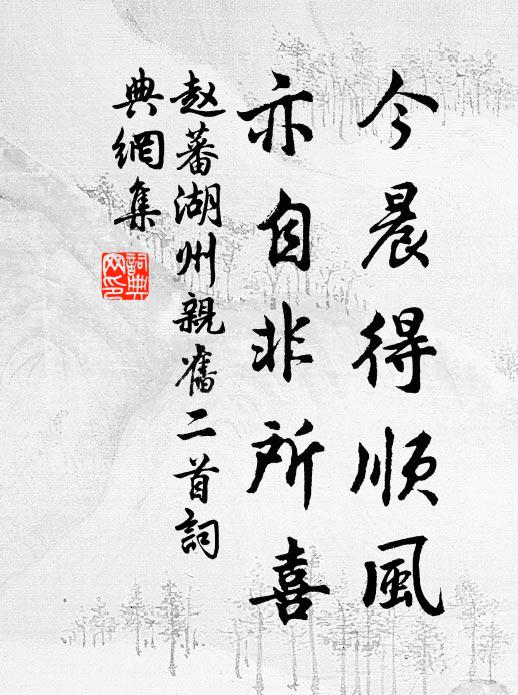 今晨得順風
亦自非所喜
赵蕃湖州親舊二首詞
典網集
詞典
网印